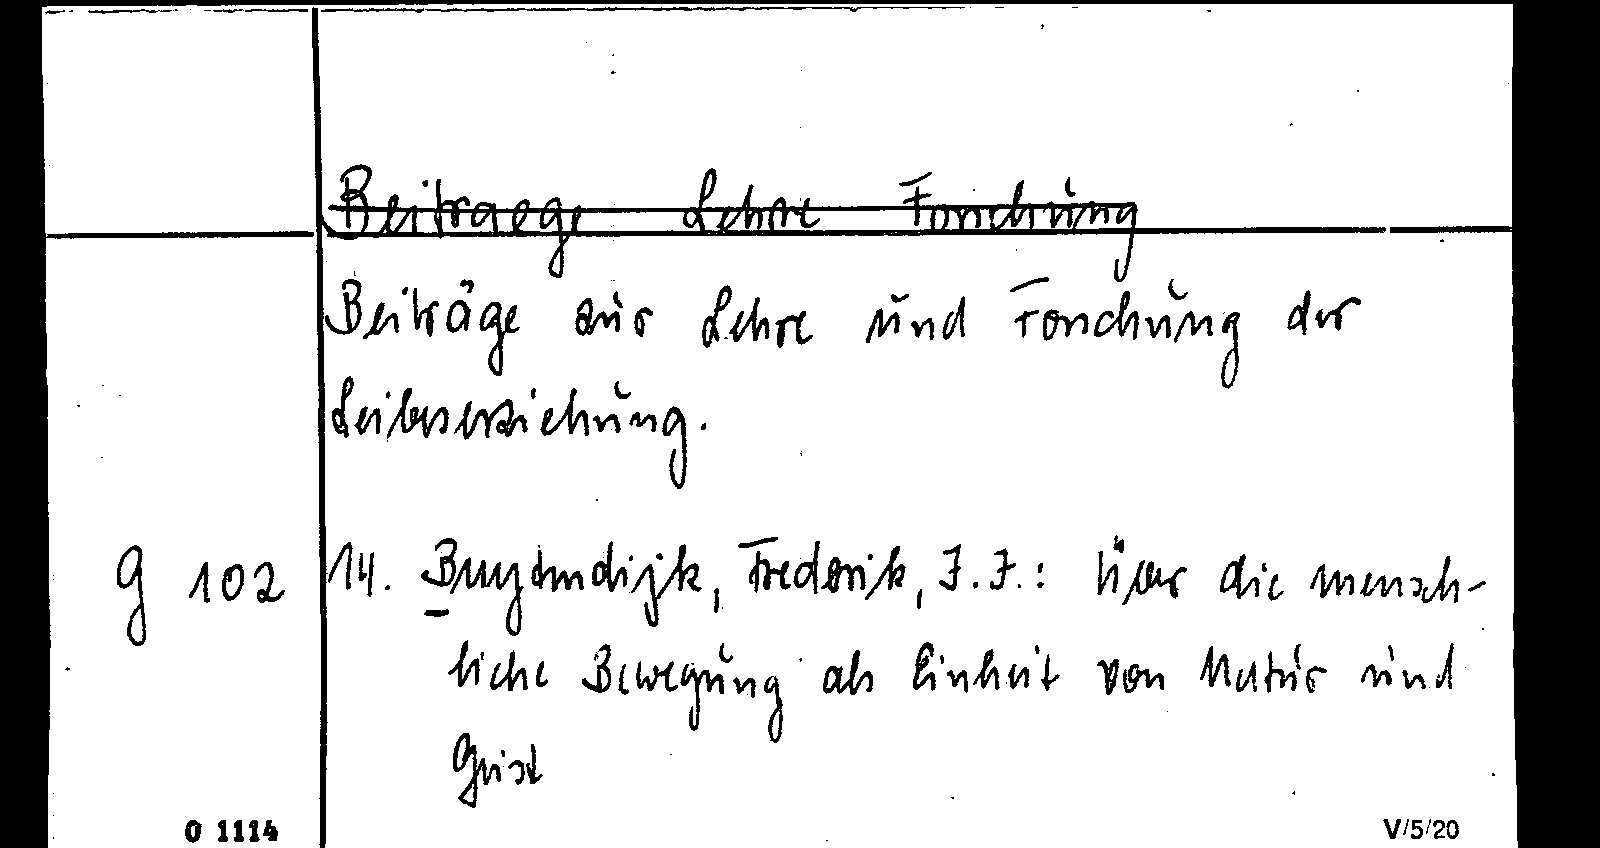 Beitraege Lehre Forschung
Beiträge zur Lehre und Forschung der
Leibeserziehung.
G 102 14. Buytendijk, Frederik, J. J.: Über die mensch-
liche Bewegung als Einheit von Natur und
Geist
O 1114 V/5/20